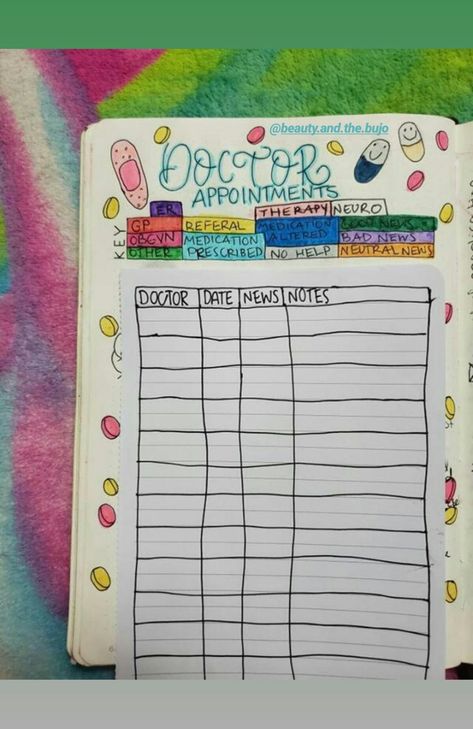 @beauty.and.the.bujo
DOCTOR
APPOINTMENTS
KEY
ER THERAPY NEURO
GP REFERAL MEDICATION GOOD NEWS
OBGYN MEDICATION ALTERED BAD NEWS
OTHER PRESCRIBED NO HELP NEUTRAL NEWS
DOCTOR DATE NEWS NOTES